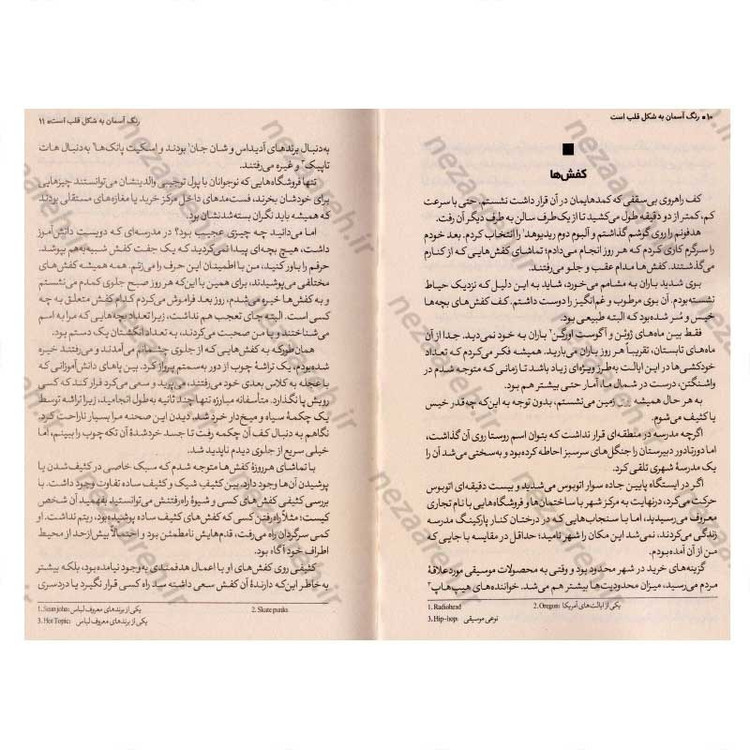 ۱۰ • رنگ آسمان به شکل قلب است
کفش‌ها
کف راهروی بی‌سقفی که کمدهایمان در آن قرار داشت نشستم. حتی با سرعت
کم، کمتر از دو دقیقه طول می‌کشید تا از یک‌طرف سالن به طرف دیگر آن رفت.
هدفونم را روی گوشم گذاشتم و آلبوم دوم ریدیوهد۱ را انتخاب کردم. بعد خودم
را سرگرم کاری کردم که هر روز انجام می‌دادم؛ تماشای کفش‌هایی که از کنارم
می‌گذشتند. کفش‌ها مدام عقب و جلو می‌رفتند.
بوی شدید باران به مشامم می‌خورد، شاید به این دلیل که نزدیک حیاط
نشسته بودم. آن بوی مرطوب و غم‌انگیز را دوست داشتم. کف کفش‌های بچه‌ها
خیس و سُر شده بود که البته طبیعی بود.
فقط بین ماه‌های ژوئن و آگوست اورگن۲ باران به خود نمی‌دید. جدا از آن
ماه‌های تابستان، تقریباً هر روز باران می‌بارید. همیشه فکر می‌کردم که تعداد
خودکشی‌ها در این ایالت به‌طرز ویژه‌ای زیاد باشد تا زمانی که متوجه شدم در
واشنگتن، درست در شمال ما، آمار حتی بیشتر هم بود.
به هر حال همیشه زمین می‌نشستم، بدون توجه به این‌که چه‌قدر خیس
یا کثیف می‌شوم.
اگرچه مدرسه در منطقه‌ای قرار نداشت که بتوان اسم روستا روی آن گذاشت،
اما دورتادور دبیرستان را جنگل‌های سرسبز احاطه کرده بود و به‌سختی می‌شد آن را
یک مدرسهٔ شهری تلقی کرد.
اگر در ایستگاه پایین جاده سوار اتوبوس می‌شدید و بیست دقیقه‌ای اتوبوس
حرکت می‌کرد، درنهایت به مرکز شهر با ساختمان‌ها و فروشگاه‌هایی با نام تجاری
معروف می‌رسیدید، اما با سنجاب‌هایی که در درختان کنار پارکینگ مدرسه
زندگی می‌کردند، نمی‌شد این مکان را شهر نامید؛ حداقل در مقایسه با جایی که
من از آن آمده بودم.
گزینه‌های خرید در شهر محدود بود و وقتی به محصولات موسیقی موردعلاقهٔ
مردم می‌رسید، میزان محدودیت‌ها بیشتر هم می‌شد. خواننده‌های هیپ‌هاپ۳
1. Radiohead
2. Oregon: یکی از ایالت‌های آمریکا
3. Hip-hop: نوعی موسیقی
رنگ آسمان به شکل قلب است • ۱۱
به‌دنبال برندهای آدیداس و شان جان۱ بودند و اسکیت پانک‌ها۲ به‌دنبال هات
تاپیک۳ و غیره می‌رفتند.
تنها فروشگاه‌هایی که نوجوانان با پول توجیبی والدینشان می‌توانستند چیزهایی
برای خودشان بخرند، فست‌مدهای داخل مرکز خرید یا مغازه‌های مستقلی بودند
که همیشه باید نگران بسته‌شدنشان بود.
اما می‌دانید چه چیزی عجیب بود؟ در مدرسه‌ای که دویست دانش‌آموز
داشت، هیچ بچه‌ای پیدا نمی‌کردید که یک جفت کفش شبیه‌به‌هم بپوشد.
حرفم را باور کنید، من با اطمینان این حرف را می‌زنم. همه همیشه کفش‌های
مختلفی می‌پوشیدند، برای همین با این‌که هر روز صبح جلوی کمدم می‌نشستم
و به کفش‌ها خیره می‌شدم، روز بعد فراموش می‌کردم کدام کفش متعلق به چه
کسی است. البته جای تعجب هم نداشت، زیرا تعداد بچه‌هایی که مرا به اسم
می‌شناختند و با من صحبت می‌کردند، به تعداد انگشتان یک دستم بود.
همان‌طور که به کفش‌هایی که از جلوی چشمانم می‌آمدند و می‌رفتند خیره
شده بودم، یک تراشهٔ چوب از دور به‌سمتم پرواز کرد. بین پاهای دانش‌آموزانی که
با عجله به کلاس بعدی خود می‌رفتند، می‌پرید و سعی می‌کرد فرار کند که کسی
رویش پا نگذارد. متأسفانه مبارزه تنها چند ثانیه به‌طول انجامید، زیرا تراشه توسط
یک چکمهٔ سیاه و میخ‌دار خرد شد. دیدن این صحنه مرا بسیار ناراحت کرد.
نگاهم به دنبال کف آن چکمه رفت تا جسد خردشدهٔ آن تکه‌چوب را ببینم، اما
خیلی سریع از جلوی دیدم ناپدید شد.
با تماشای هرروزهٔ کفش‌ها متوجه شدم که سبک خاصی در کثیف‌شدن یا
پوشیدن آن‌ها وجود دارد. بین کثیفِ شیک و کثیفِ ساده تفاوت وجود داشت. با
بررسی کثیفی کفش‌های کسی و شیوهٔ راه‌رفتنش می‌توانستید بفهمید آن شخص
کیست؛ مثلاً راه‌رفتن کسی که کفش‌های کثیف ساده پوشیده بود، ریتم نداشت. او
کمی سرگردان راه می‌رفت، قدم‌هایش نامطمئن بود و احتمالاً بیش‌ازحد از محیط
اطراف خود آگاه بود.
کثیفی روی کفش‌های او با اعمال هدفمندی به‌وجود نیامده بود، بلکه بیشتر
به خاطر این‌که دارندهٔ آن کفش سعی داشته سد راه کسی قرار نگیرد یا دردسری
1. Sean john: یکی از برندهای معروف لباس
2. Skate punks
3. Hot Topic: یکی از برندهای معروف لباس
nezaareh.ir